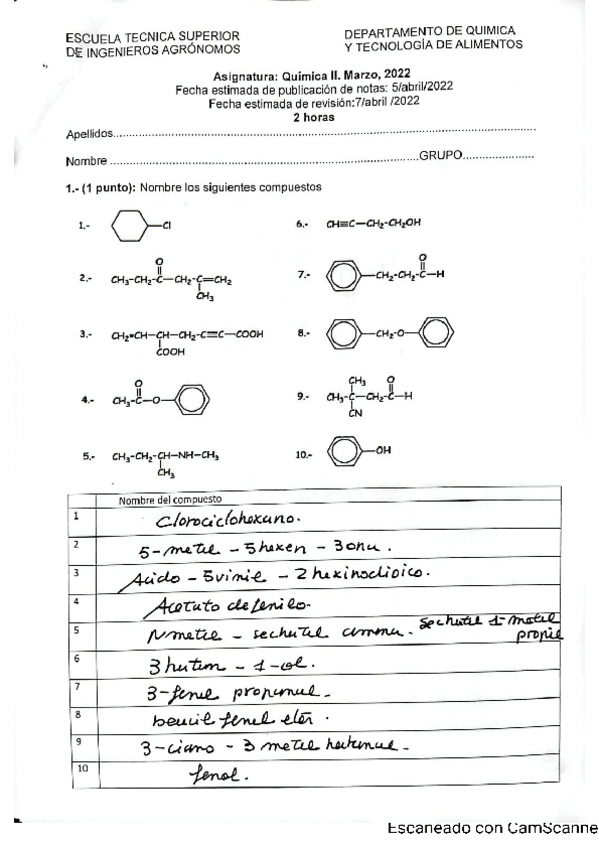 ESCUELA TECNICA SUPERIOR
DE INGENIEROS AGRÓNOMOS
DEPARTAMENTO DE QUIMICA
Y TECNOLOGÍA DE ALIMENTOS
Asignatura: Quimica II. Marzo, 2022
Fecha estimada de publicación de notas: 5/abril/2022
Fecha estimada de revisión:7/abril /2022
2 horas
Apellidos
Nombre GRUPO
1.- (1 punto): Nombre los siguientes compuestos
1.- Cl
6.- CH≡C—CH2-CH2OH
2.- CH3-CH2-C—CH2-C=CH2
O
CH3
7.- CH2-CH2-C—H
O
3.- CH2=CH—CH—CH2-C≡C—COOH
COOH
8.- CH2-O
4.- CH3-C—O
O
9.- CH3-C—CH2-C—H
CH3 O
CN
5.- CH3-CH2-CH—NH—CH3
CH3
10.- OH
Nombre del compuesto
1 Clorociclohexano.
2 5-metil - 5hexen - 3ona.
3 Acido - 5vinil - 2 hexinodioico.
4 Acetato de fenilo.
5 N metil - secbutil amina. Secbutil 1- metil
propil
6 3 butin - 1-ol.
7 3-fenil propanal.
8 bencil fenil eter.
9 3-ciano - 3 metil butanal.
10 fenol.
Escaneado con CamScanne